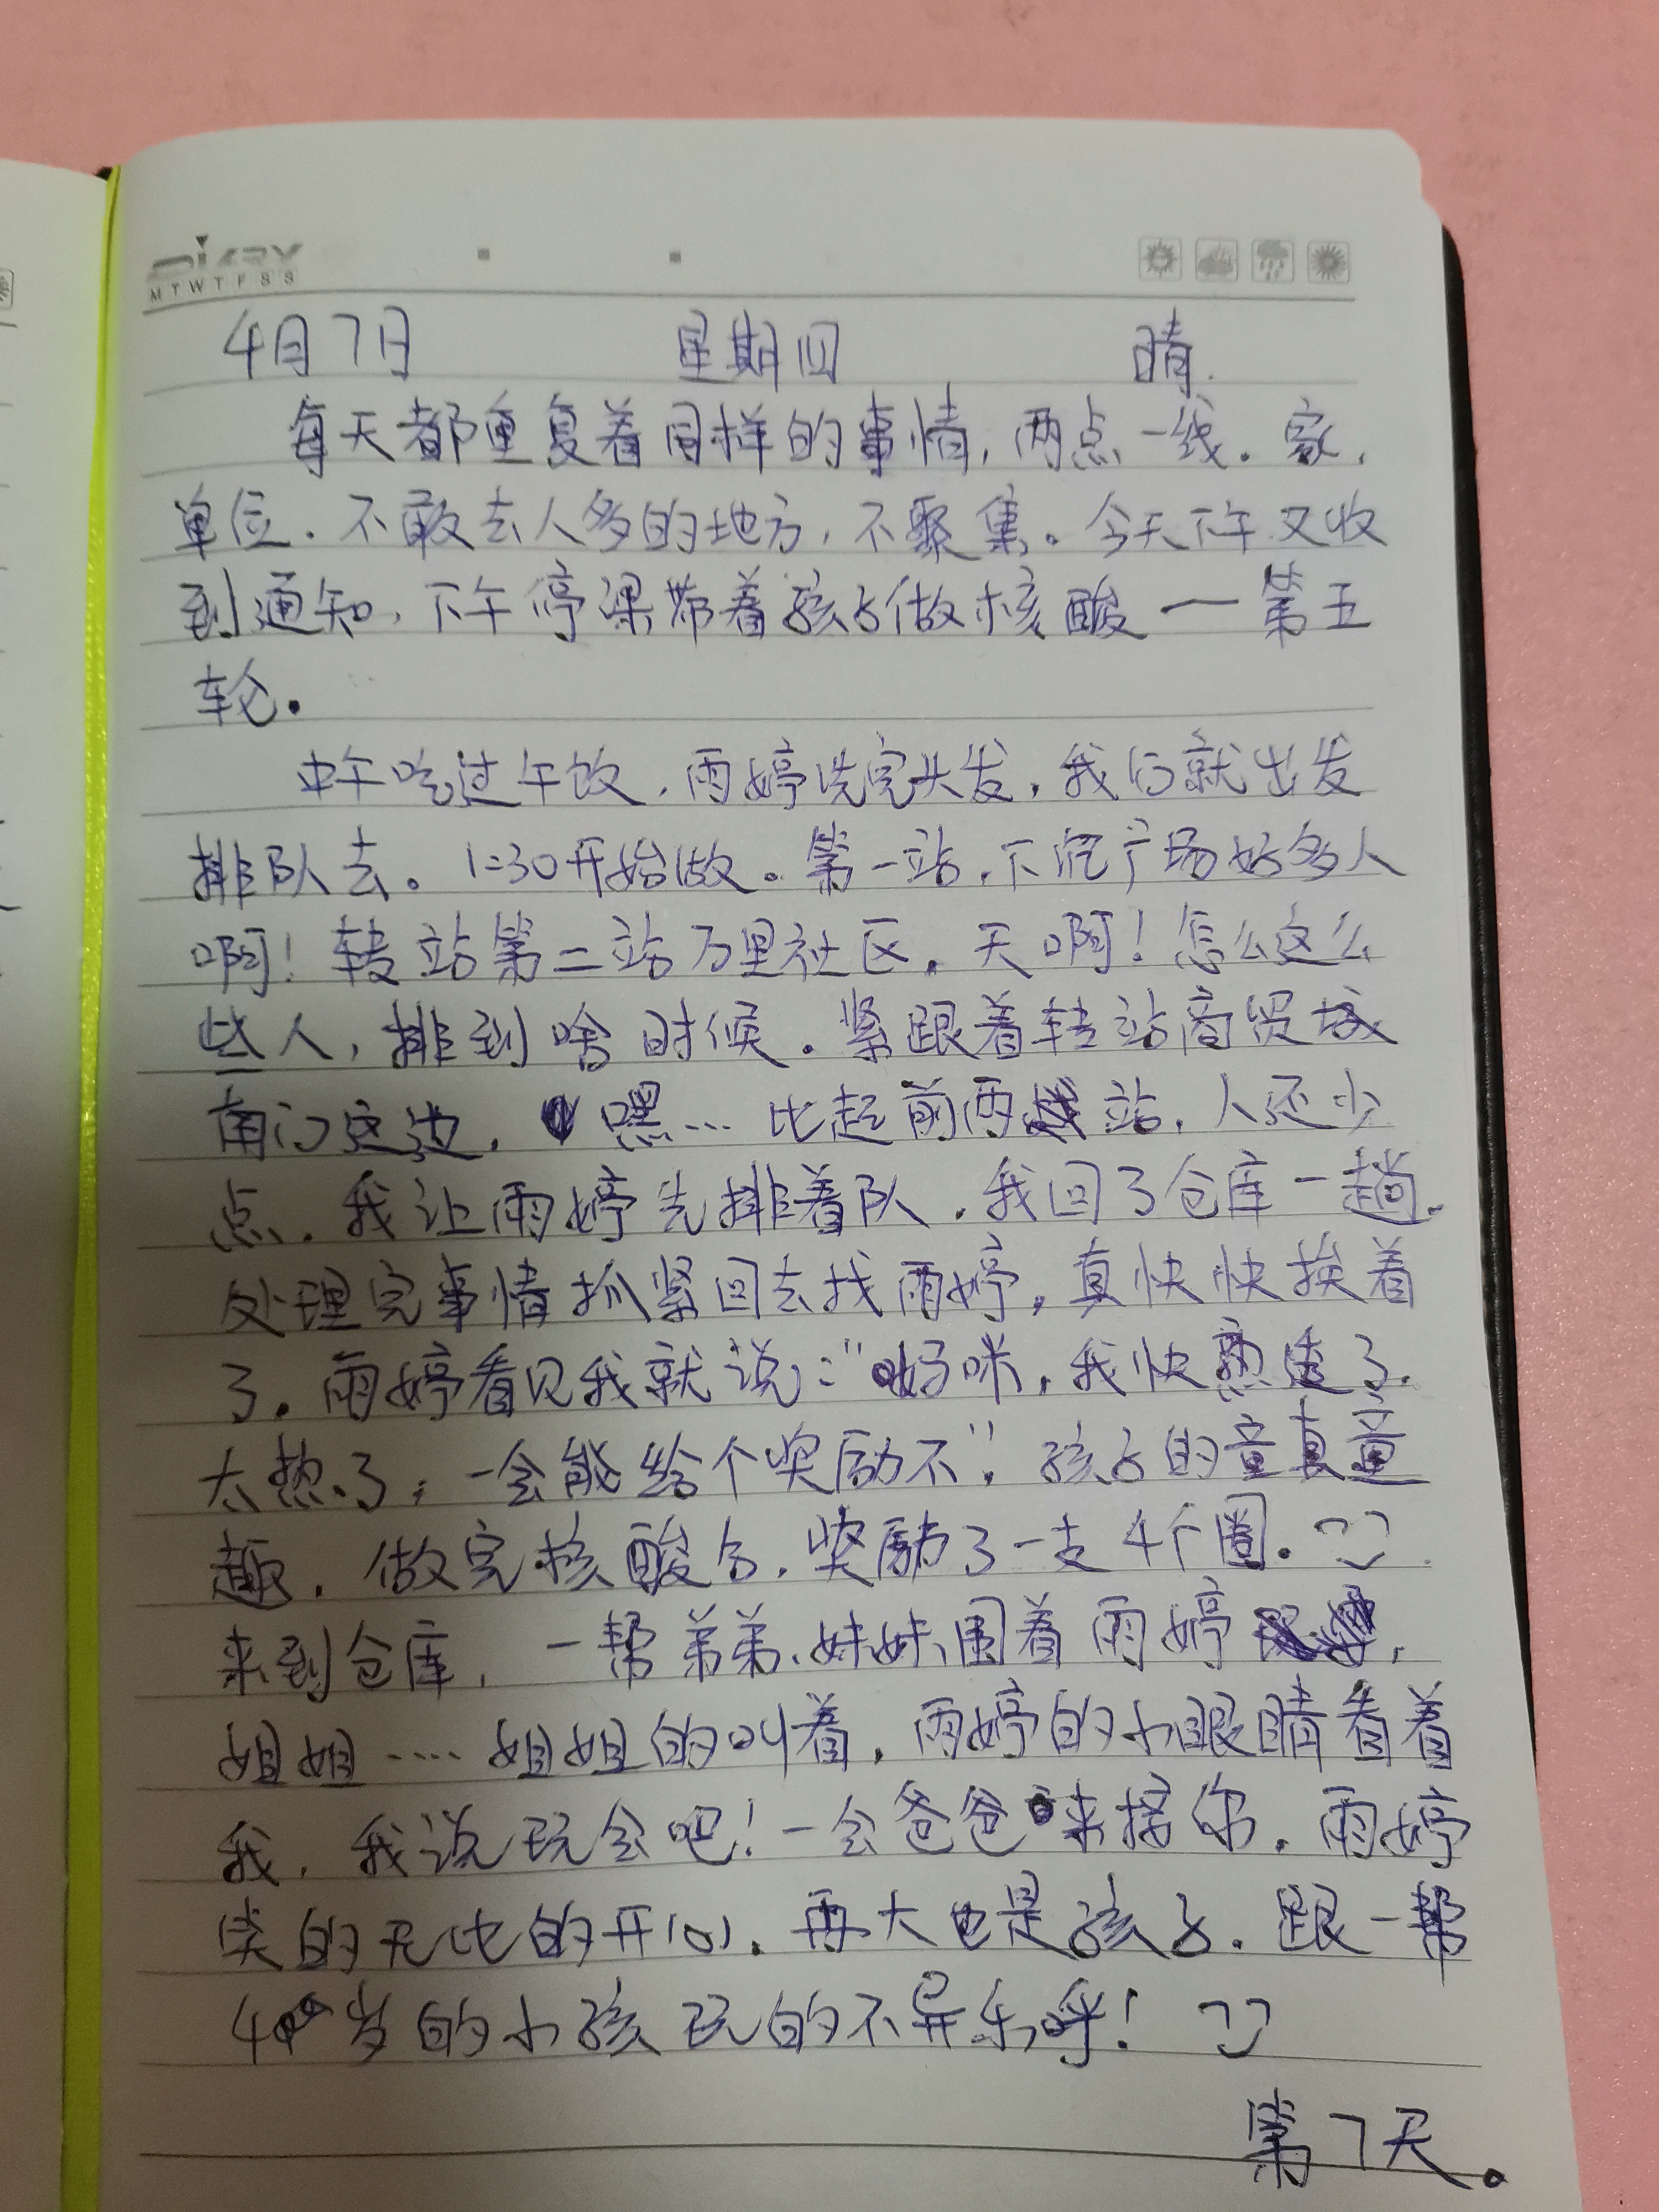 DIARY
M T W T F S S
4月7日 星期四 晴.
每天都重复着同样的事情,两点一线。家,
单位.不敢去人多的地方,不聚集。今天下午又收
到通知,下午停课带着孩子做核酸一第五
轮。
中午吃过午饭,雨婷洗完头发,我们就出发
排队去。1:30开始做。第一站,下沉广场好多人
啊!转站第二站万里社区。天啊!怎么这么
些人,排到啥时候。紧跟着转站商贸城
南门这边,嘿…比起前两站,人还少
点.我让雨婷先排着队,我回了仓库一趟.
处理完事情抓紧回去找雨婷,真快快挨着
了。雨婷看见我就说:"妈咪,我快热透了.
太热了,一会能给个奖励不",孩子的童真童
趣.做完核酸后,奖励了一支4个圈.
来到仓库,一帮弟弟、妹妹围着雨婷,
姐姐····姐姐的叫着,雨婷的小眼睛看着
我,我说玩会吧!一会爸爸来接你.雨婷
笑的无比的开心,再大也是孩子.跟一帮
4岁的小孩玩的不异乐呼!
第7天。